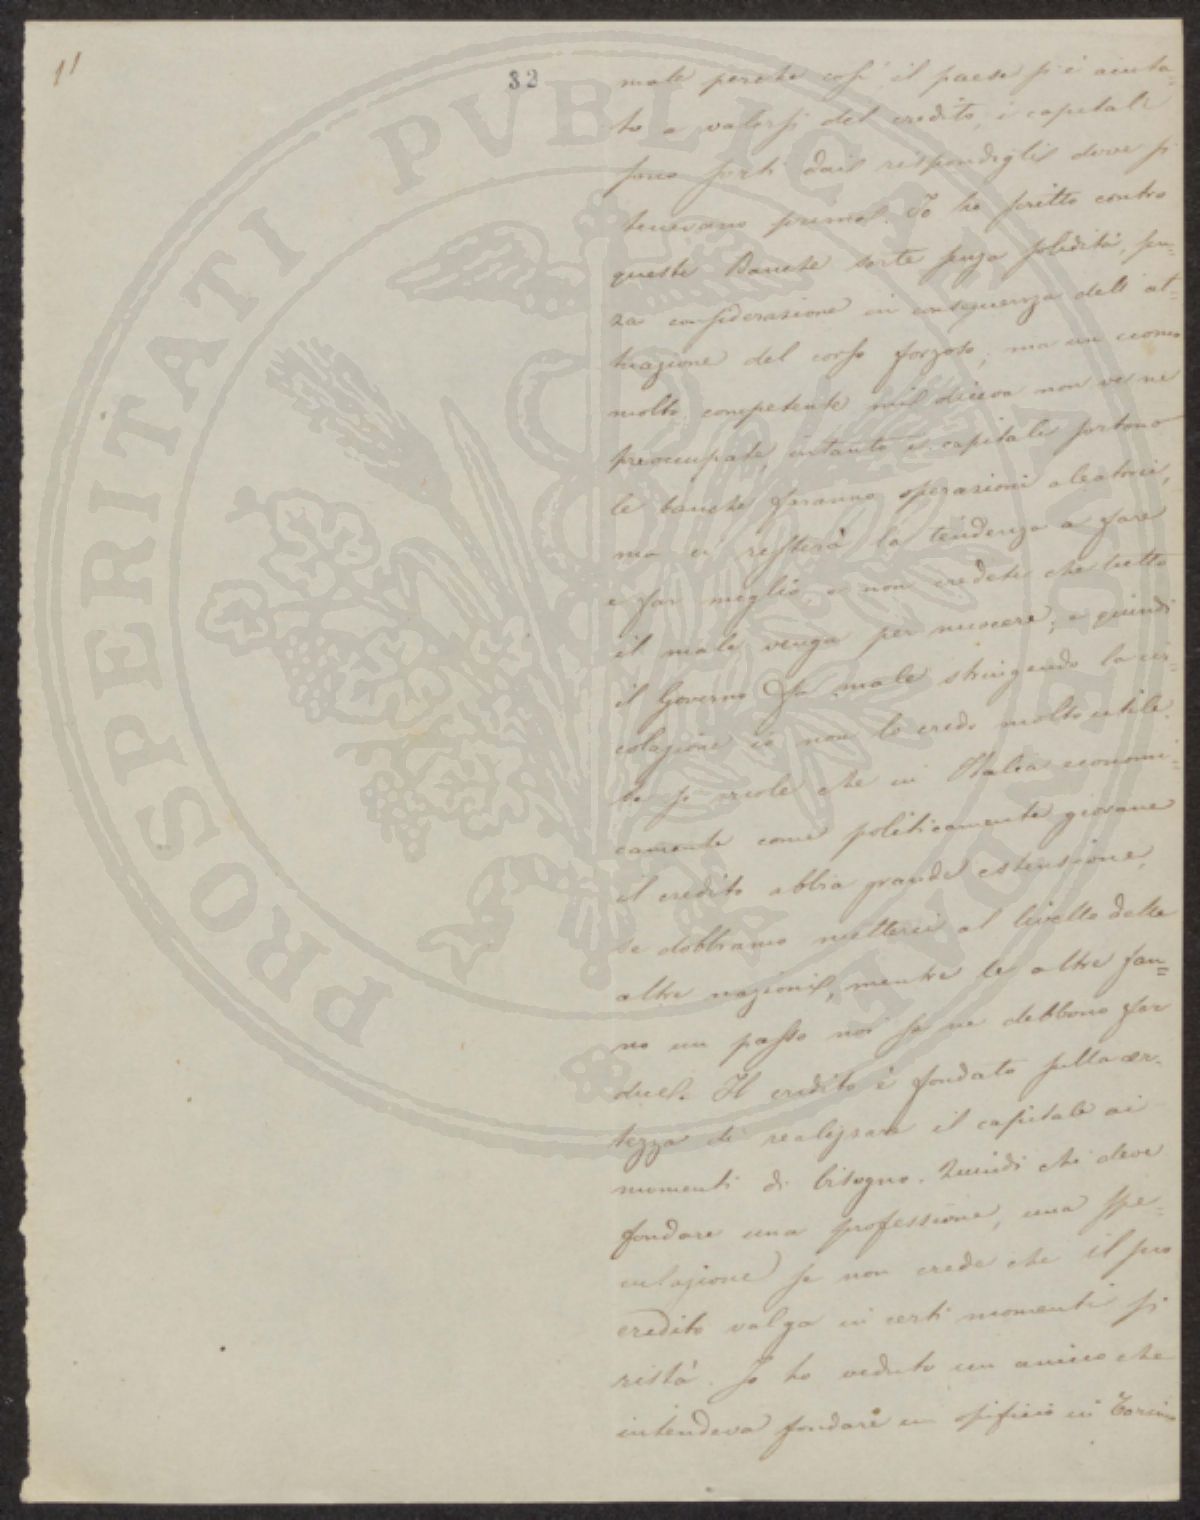 11
32
male perché così il paese si è aiuta=
to a valersi del credito, i capitali
sono sorti dai ripondigli dove si
tenevano prima. Io ho scritto contro
queste Banche sorte senza solidità, sen=
za considerazione in conseguenza dell' at=
tuazione del corso forzoso; ma un uomo
molto competente mi diceva non ve ne
preoccupate, intanto i capitali sortono
le banche faranno operazioni aleatorie,
ma vi resterà la tendenza a fare
e far meglio, e non credete che tutto
il male venga per nuocere; e quindi
il Governo fa male stringendo la cir=
colazione io non lo credo molto utile.
Se si vuole che in Italia economi=
camente come politicamente giovane
il credito abbia grande estensione,
se dobbiamo metterci al livello delle
altre nazioni, mentre le altre fan=
no un passo noi se ne debbono far
due. Il credito è fondato sulla cer=
tezza di realizzare il capitale ai
momenti di bisogno. Quindi chi deve
fondare una professione, una spe=
culazione se non crede che il suo
credito valga in certi momenti si
ristà. Io ho veduto un amico che
intendeva fondare un opificio in Torino
PROSPERITATI PVBLICAE AVGENDAE